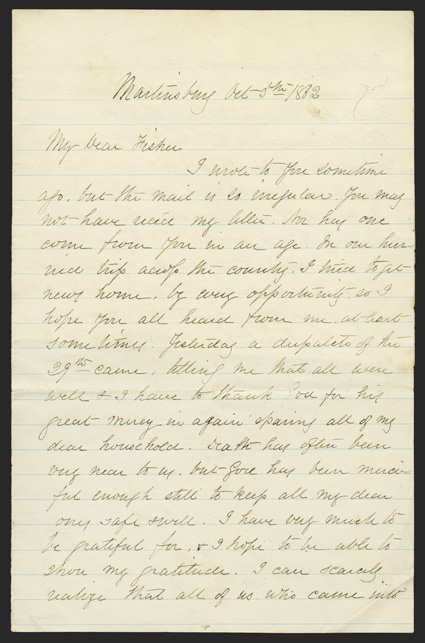 Martinsburg Oct 5th 1862
My Dear Fisher
I wrote to you sometime
ago. but the mail is so irregular. you may
not have recd my letter. Nor has one
come from you in an age. In our hur-
ried trip across the country. I tried to get
news home. by every opportunity. so I
hope you all heard from me at least
sometimes. Yesterday a despatch of the
29th came. telling me that all were
well & I have to thank God for his
great mercy in again sparing all of my
dear household. Death has often been
very near to us. but God has been merci-
ful enough still to keep all my dear
ones safe & well. I have very much to
be grateful for. & I hope to be able to
show my gratitude. I can scarcely
realize that all of us who came into